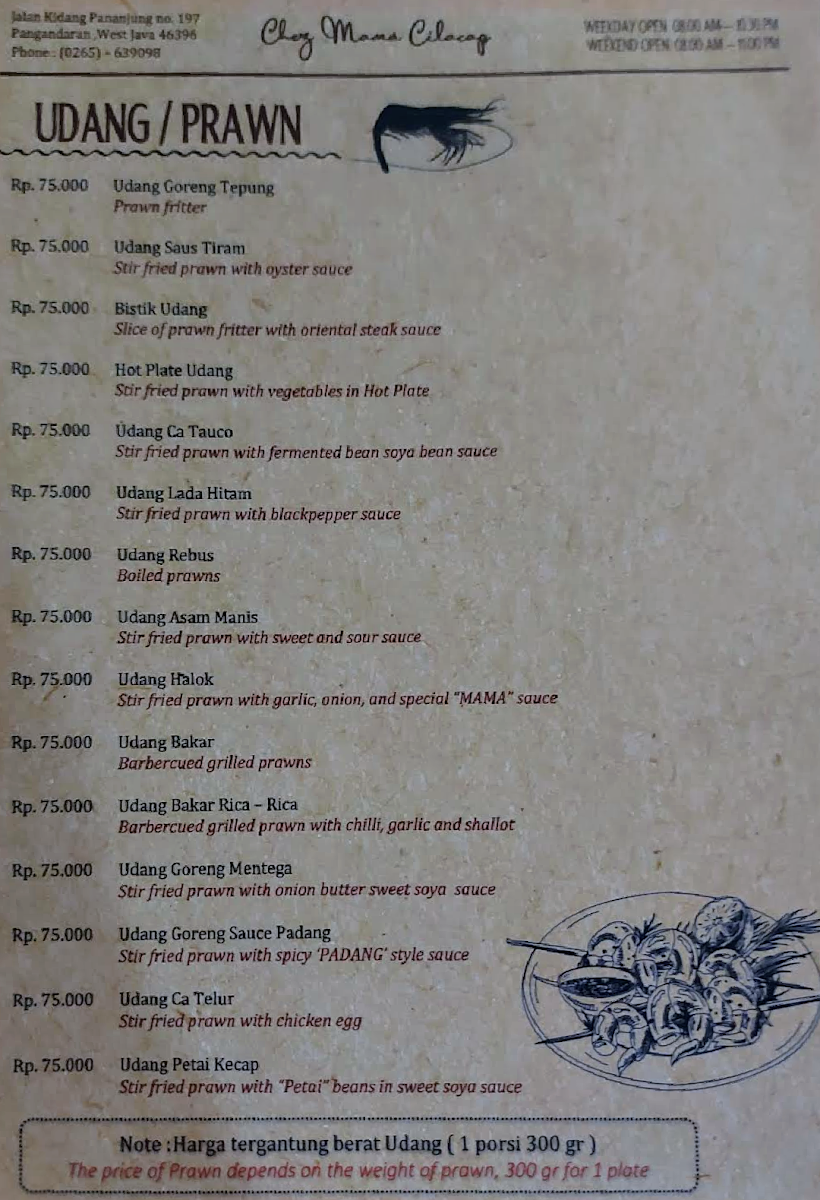 Jalan Kidang Pananjung no. 197
Pangandaran ,West Java 46396
Phone : (0265) - 639098
Chez Mama Cilacap
WEEKDAY OPEN 08:00 AM – 10.30 PM
WEEKEND OPEN 08:00 AM – 11:00 PM
UDANG / PRAWN
Rp. 75.000 Udang Goreng Tepung
Prawn fritter
Rp. 75.000 Udang Saus Tiram
Stir fried prawn with oyster sauce
Rp. 75.000 Bistik Udang
Slice of prawn fritter with oriental steak sauce
Rp. 75.000 Hot Plate Udang
Stir fried prawn with vegetables in Hot Plate
Rp. 75.000 Udang Ca Tauco
Stir fried prawn with fermented bean soya bean sauce
Rp. 75.000 Udang Lada Hitam
Stir fried prawn with blackpepper sauce
Rp. 75.000 Udang Rebus
Boiled prawns
Rp. 75.000 Udang Asam Manis
Stir fried prawn with sweet and sour sauce
Rp. 75.000 Udang Halok
Stir fried prawn with garlic, onion, and special "MAMA" sauce
Rp. 75.000 Udang Bakar
Barbercued grilled prawns
Rp. 75.000 Udang Bakar Rica – Rica
Barbercued grilled prawn with chilli, garlic and shallot
Rp. 75.000 Udang Goreng Mentega
Stir fried prawn with onion butter sweet soya sauce
Rp. 75.000 Udang Goreng Sauce Padang
Stir fried prawn with spicy 'PADANG' style sauce
Rp. 75.000 Udang Ca Telur
Stir fried prawn with chicken egg
Rp. 75.000 Udang Petai Kecap
Stir fried prawn with "Petai" beans in sweet soya sauce
Note :Harga tergantung berat Udang ( 1 porsi 300 gr )
The price of Prawn depends on the weight of prawn, 300 gr for 1 plate